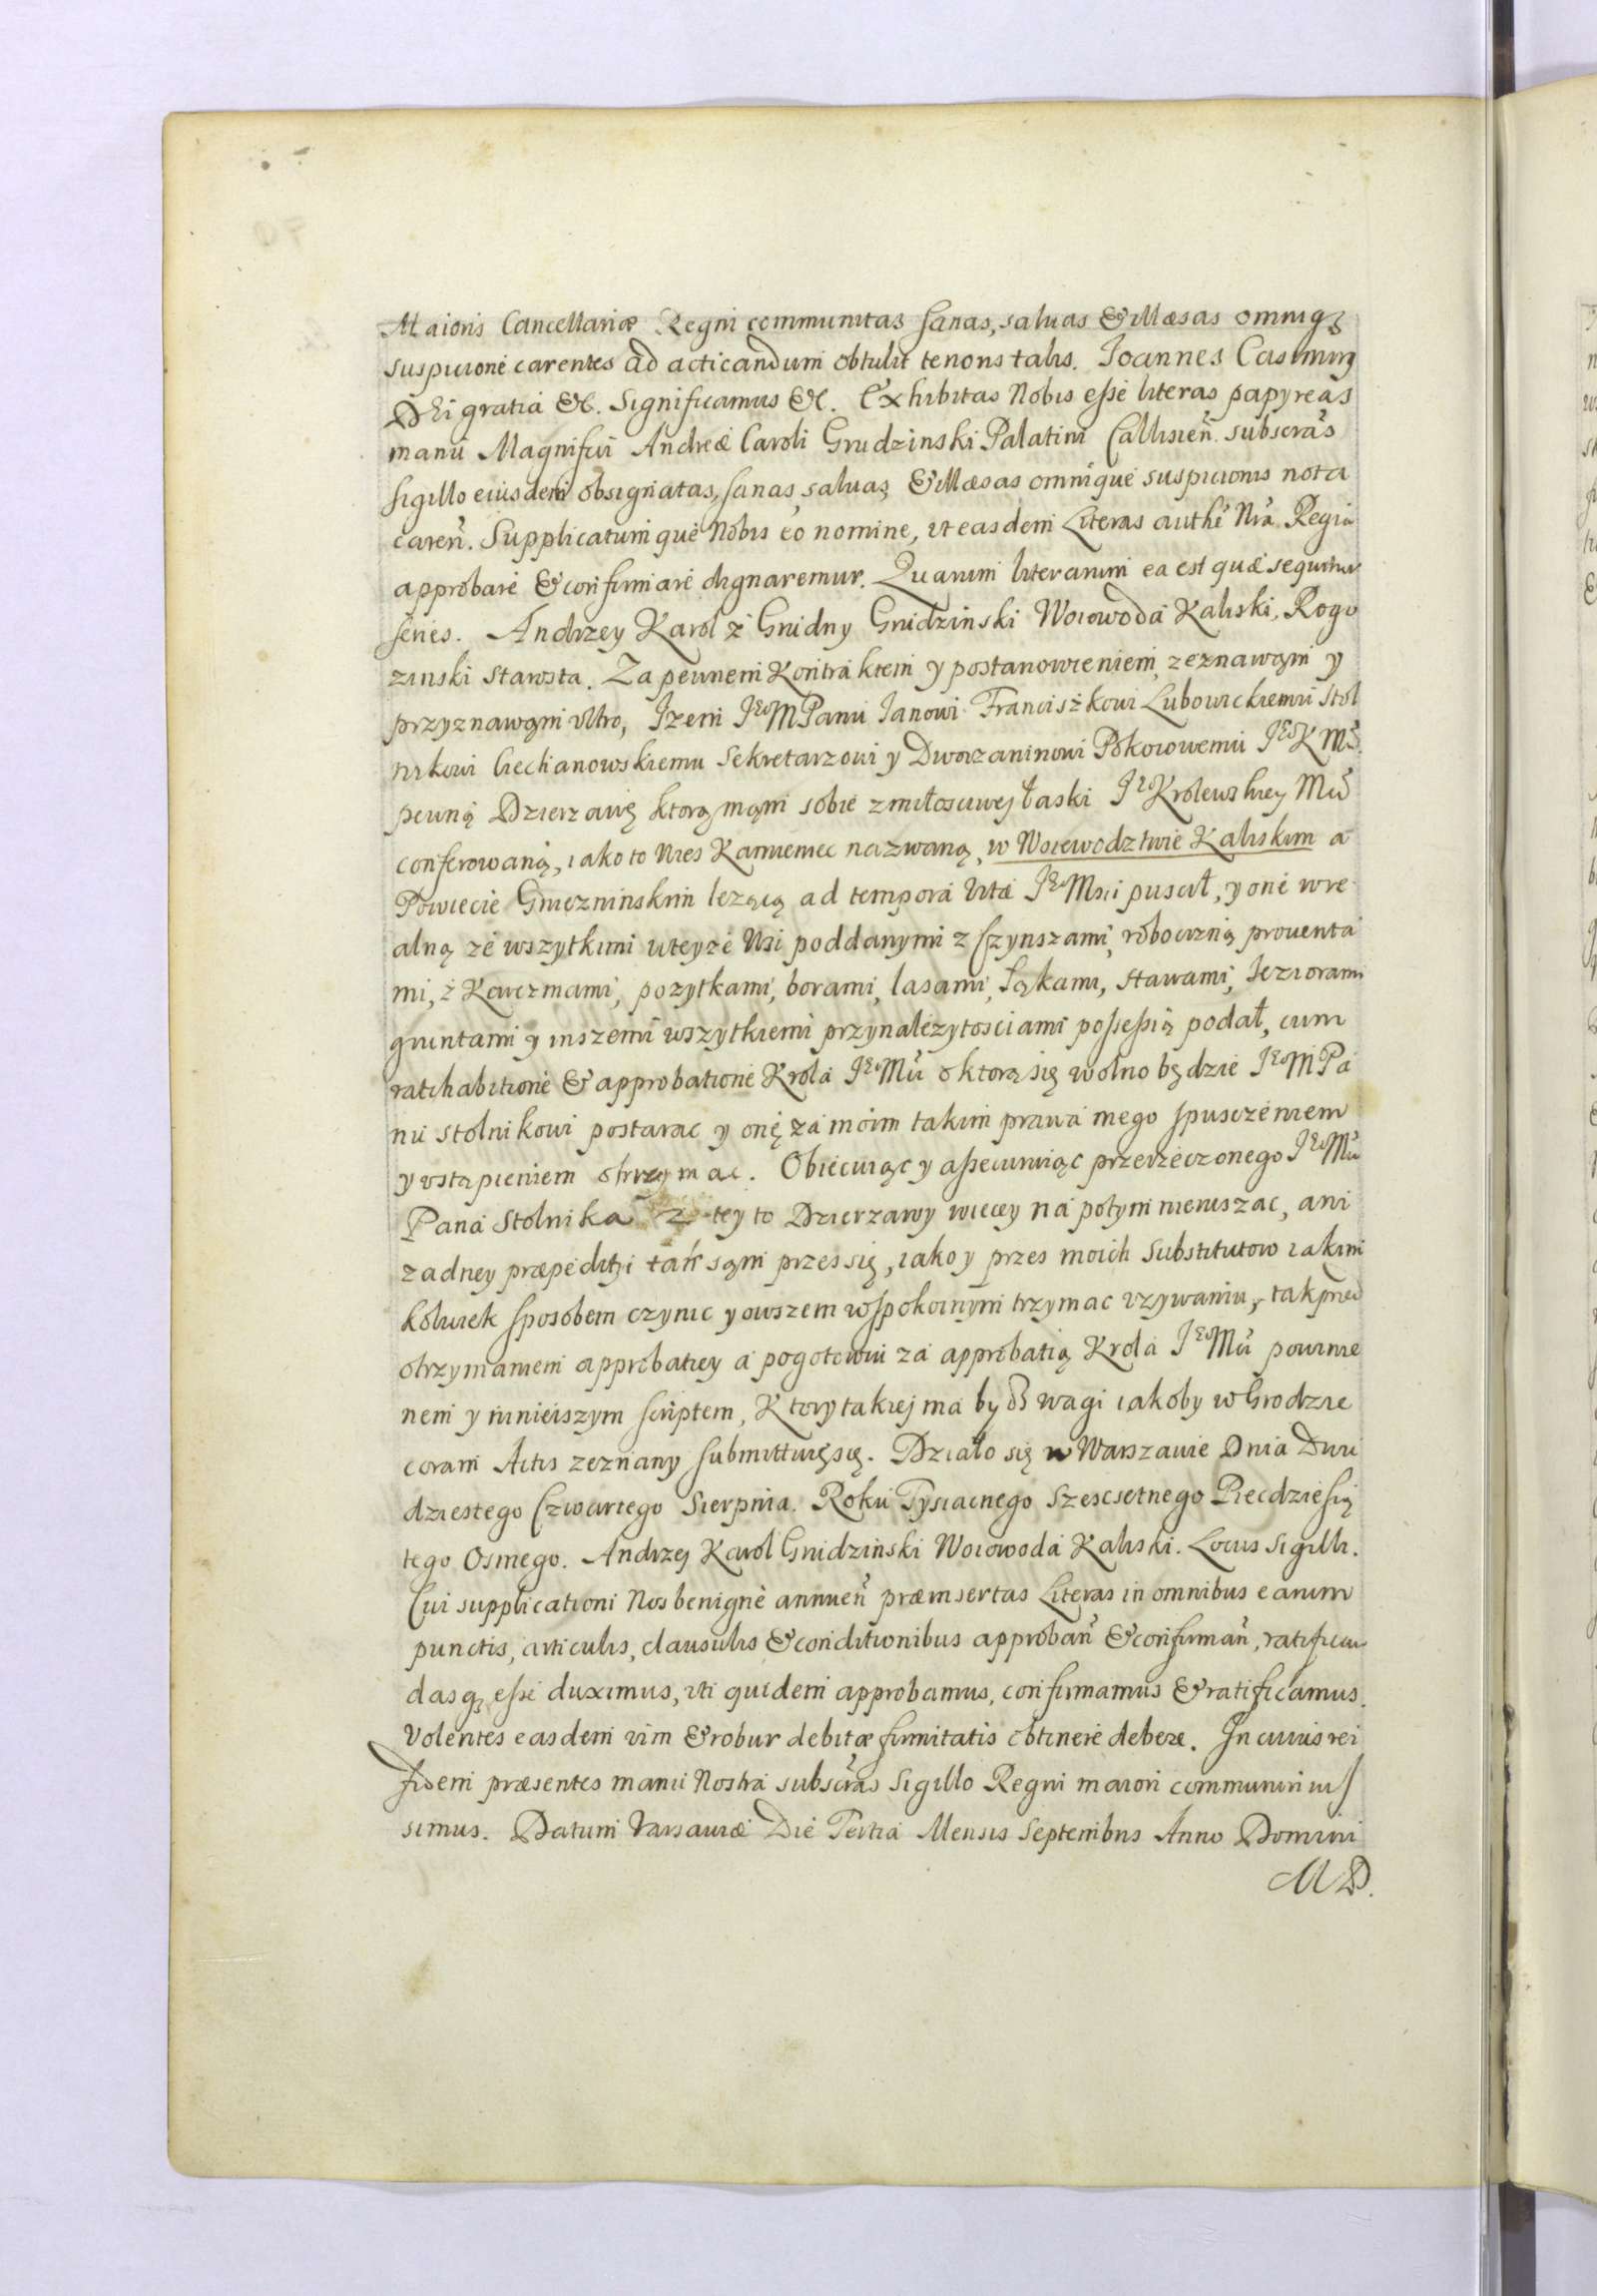 Maioris Cancellariæ Regni communitas sanas, saluas & illæsas omniq3
suspicione carentes ad acticandum obtulit tenoris talis. Joannes Casimirq
DEi gratia &c. Significamus &c. Exhibitas Nobis esse literas papyreas
manu Magnifici Andreæ Caroli Grudzinski Palatini Callisien̄. subscrās
sigillo eiusdem obsignatas, sanas, saluas & illæsas omnique suspicionis nota
caren̄. Supplicatumque Nobis eo nomine, ut easdem Literas authē Nrā Regia
approbare & confirmare dignaremur. Quarum literarum ea est quæ sequitur
series. Andrzey Karol z Grudny Grudzinski Woiowoda Kaliski, Rogo
zinski Starosta. Za pewnem Kontraktem y postanowieniem, zeznawam y
przyznawam ultro, Jzem JEoMPanu Janowi Franciszkowi Lubowickiemu Stol
nikowi Ciechanowskiemu Sekretarzowi y Dworzaninowi Pokoiowemu JEoKMŚ.
pewną Dzierzawę ktorą mąm sobie z miłosciwej łaski JEoKrolewskiey Mci
conferowaną, iako to Wies Kamieniec nazwaną, w Woiewodztwie Kaliskim a
Powiecie Gniezninskim lezącą ad tempora vitæ JEoMsci puscił, y onę w re
alną ze wszytkimi w teyze Wsi poddanymi z Czynszami, robocizną prouenta
mi, z Karczmami, pozytkami, borami, lasami, Łąkami, stawami, Jeziorami
gruntami y inszemi wszytkiemi przynalezytosciami possessią podał, cum
ratihabitione & approbatione Krola JEoMci o ktorą się wolno będzie JEoMPa
nu Stolnikowi postarac y onę za moim takim prawa mego spusczeniem
y vstąpieniem otrzymac. Obiecuiąc y assecuruiąc przerzeczonego JEoMci
Pana Stolnika z tey to Dzierzawy wiecey na potym nieruszac, ani
zadney præpeditij tak sąm przes się, iako y przes moich Substitutow iakim
kolwiek sposobem czynic y owszem w spokoinym trzymac vzywaniu, tak przed
otrzymaniem approbatiey a pogotowiu za approbatią Krola JEoMci powinie
nem y niniejszym scriptem, Ktory takiej ma bydź wagi iakoby w Grodzie
coram Actis zeznany submittuięsię. Działo się w Warszawie Dnia Dwu
dziestego Czwartego Sierpnia. Roku Tysiacnego Szescsetnego Piecdziesią
tego Osmego. Andrzej Karol Grudzinski Woiowoda Kaliski. Locus Sigilli.
Cui supplicationi Nos benignè annuen̄ præinsertas Literas in omnibus earum
punctis, articulis, clausulis & conditionibus approban̄ & confirman̄, ratifican
dasq3 esse duximus, uti quidem approbamus, confirmamus & ratificamus.
Volentes easdem vim & robur debitæ firmitatis obtinere debere. In cuius rei
fidem præsentes manu Nostra subscrās Sigillo Regni maiori communiri ius
simus. Datum Varsauiæ Die Tertia Mensis Septembris Anno Domini
MD.